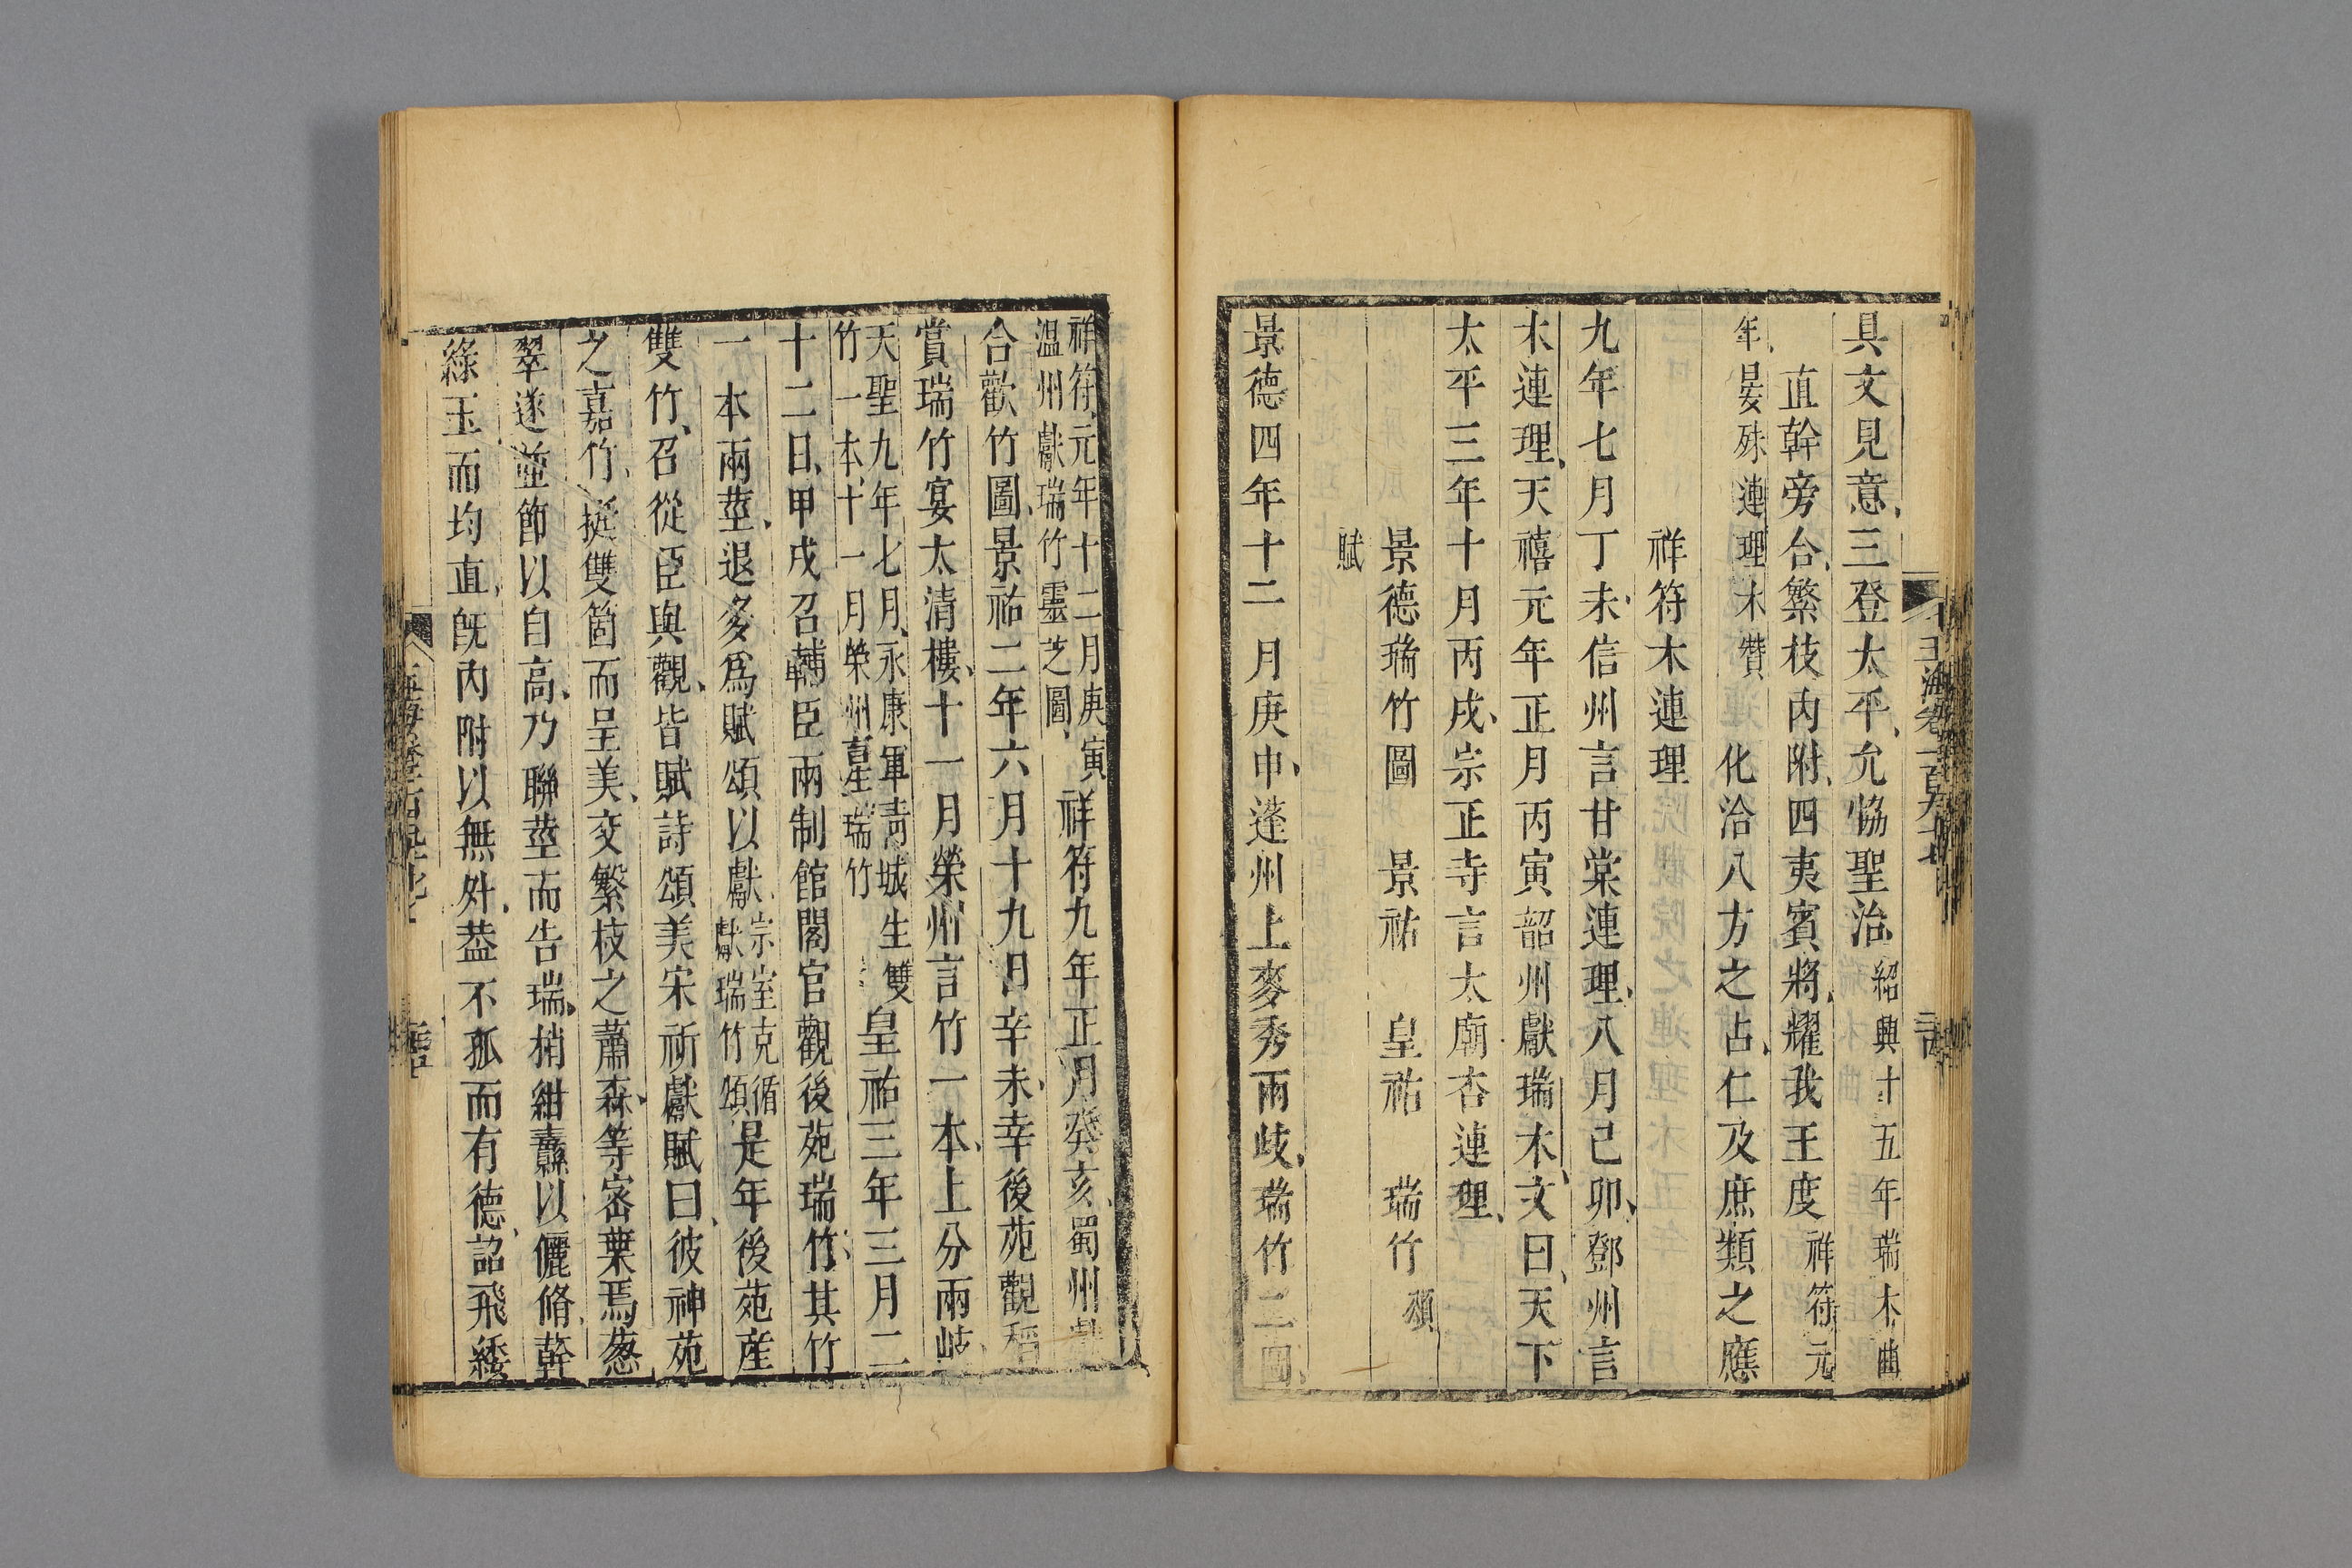 具文見意三登太平允恊聖治紹興十五年瑞木曲
直幹旁合繁枝内附四夷賓將耀我王度祥符元
年晏殊連理木贊化洽八方之占仁及庶類之應
祥符木連理
九年七月丁未信州言甘棠連理八月己卯鄧州言
木連理天禧元年正月丙寅韶州獻瑞木文曰天下
太平三年十月丙戌宗正寺言太廟杏連理
景德瑞竹圖 景祐 皇祐 瑞竹頌
賦
景德四年十二月庚申蓬州上麥秀兩歧瑞竹二圖
祥符元年十二月庚寅
温州獻瑞竹靈芝圖
祥符九年正月癸亥蜀州獻
合歡竹圖景祐二年六月十九日辛未幸後苑觀稻
賞瑞竹宴太清樓十一月榮州言竹一本上分兩岐
天聖九年七月永康軍青城生雙
竹一本十一月榮州畺生瑞竹
皇祐三年三月二
十二日甲戌召輔臣兩制館閣官觀後苑瑞竹其竹
一本兩莖退多爲賦頌以獻
宗室克循
獻瑞竹頌
是年後苑產
雙竹召從臣與觀皆賦詩頌美宋祈獻賦曰彼神苑
之嘉竹挺雙箇而呈美交繁枝之蕭森等宻葉焉葱
翠遂並節以自高乃聯莖而告瑞梢紺纛以儷脩幹
綠玉而均直旣内附以無外葢不孤而有德詔飛緌